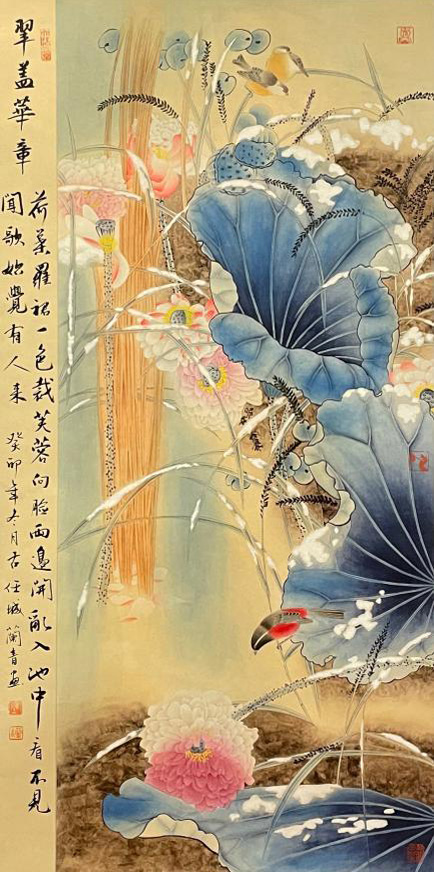 翠盖华章
荷叶罗裙一色裁芙蓉向脸两边开乱入池中看不见
闻歌始觉有人来 癸卯年冬月古任城兰青画